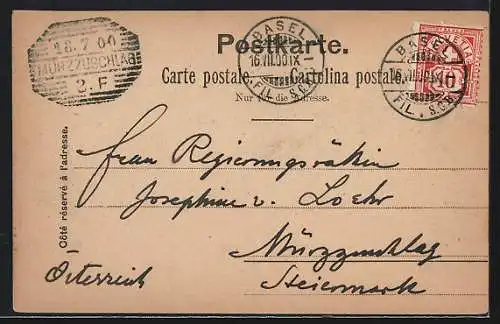 Postkarte.
Carte postale. Cartolina postale.
Nur für die Adresse.
Côté réservé à l'adresse.
18.7.00
MÜRZZUSCHLAG
2.F
BASEL
16.VII.00.IX
FIL. S.C.B.
BASEL
16.VII.00.IX
FIL. S.C.B.
10
Frau Regierungsrätin
Josephine v. Loehr
Mürzzuschlag
Österreich
Steiermark